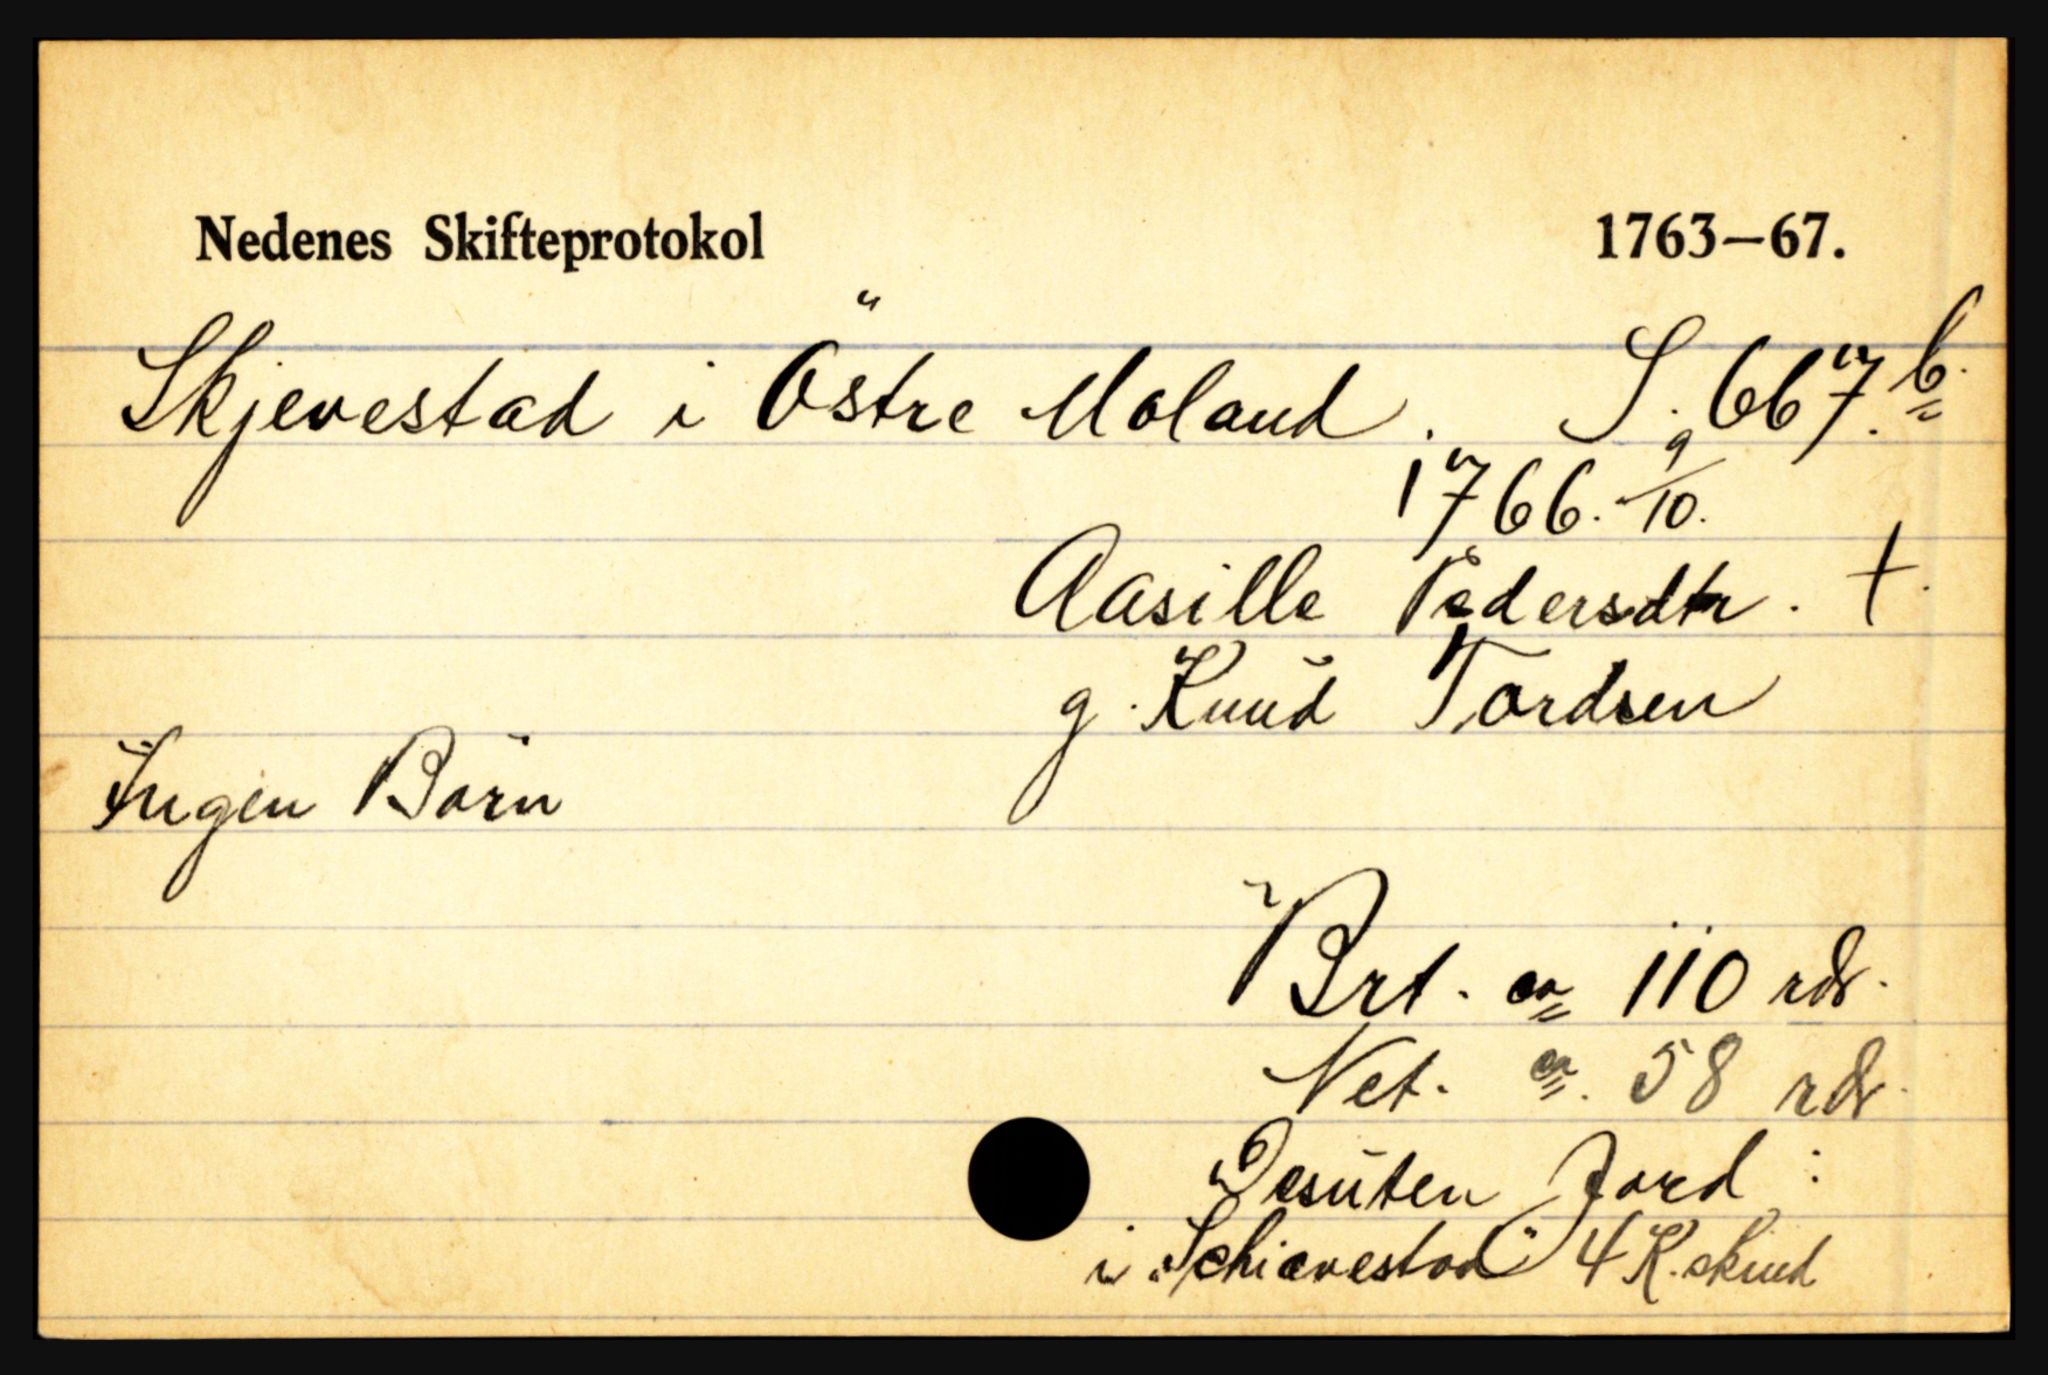 Nedenes Skifteprotokol 1763—67.
Skjevestad i Östre Moland. S. 667. b.
1766. 9/10.
Aasille Pedersdtr. †.
g. Knud Tordsen
Ingen Börn
Brt. ca 110 rdr.
Net. ca. 58 rdr.
Desuten Jord:
i "Schiævestad" 4 K. skind